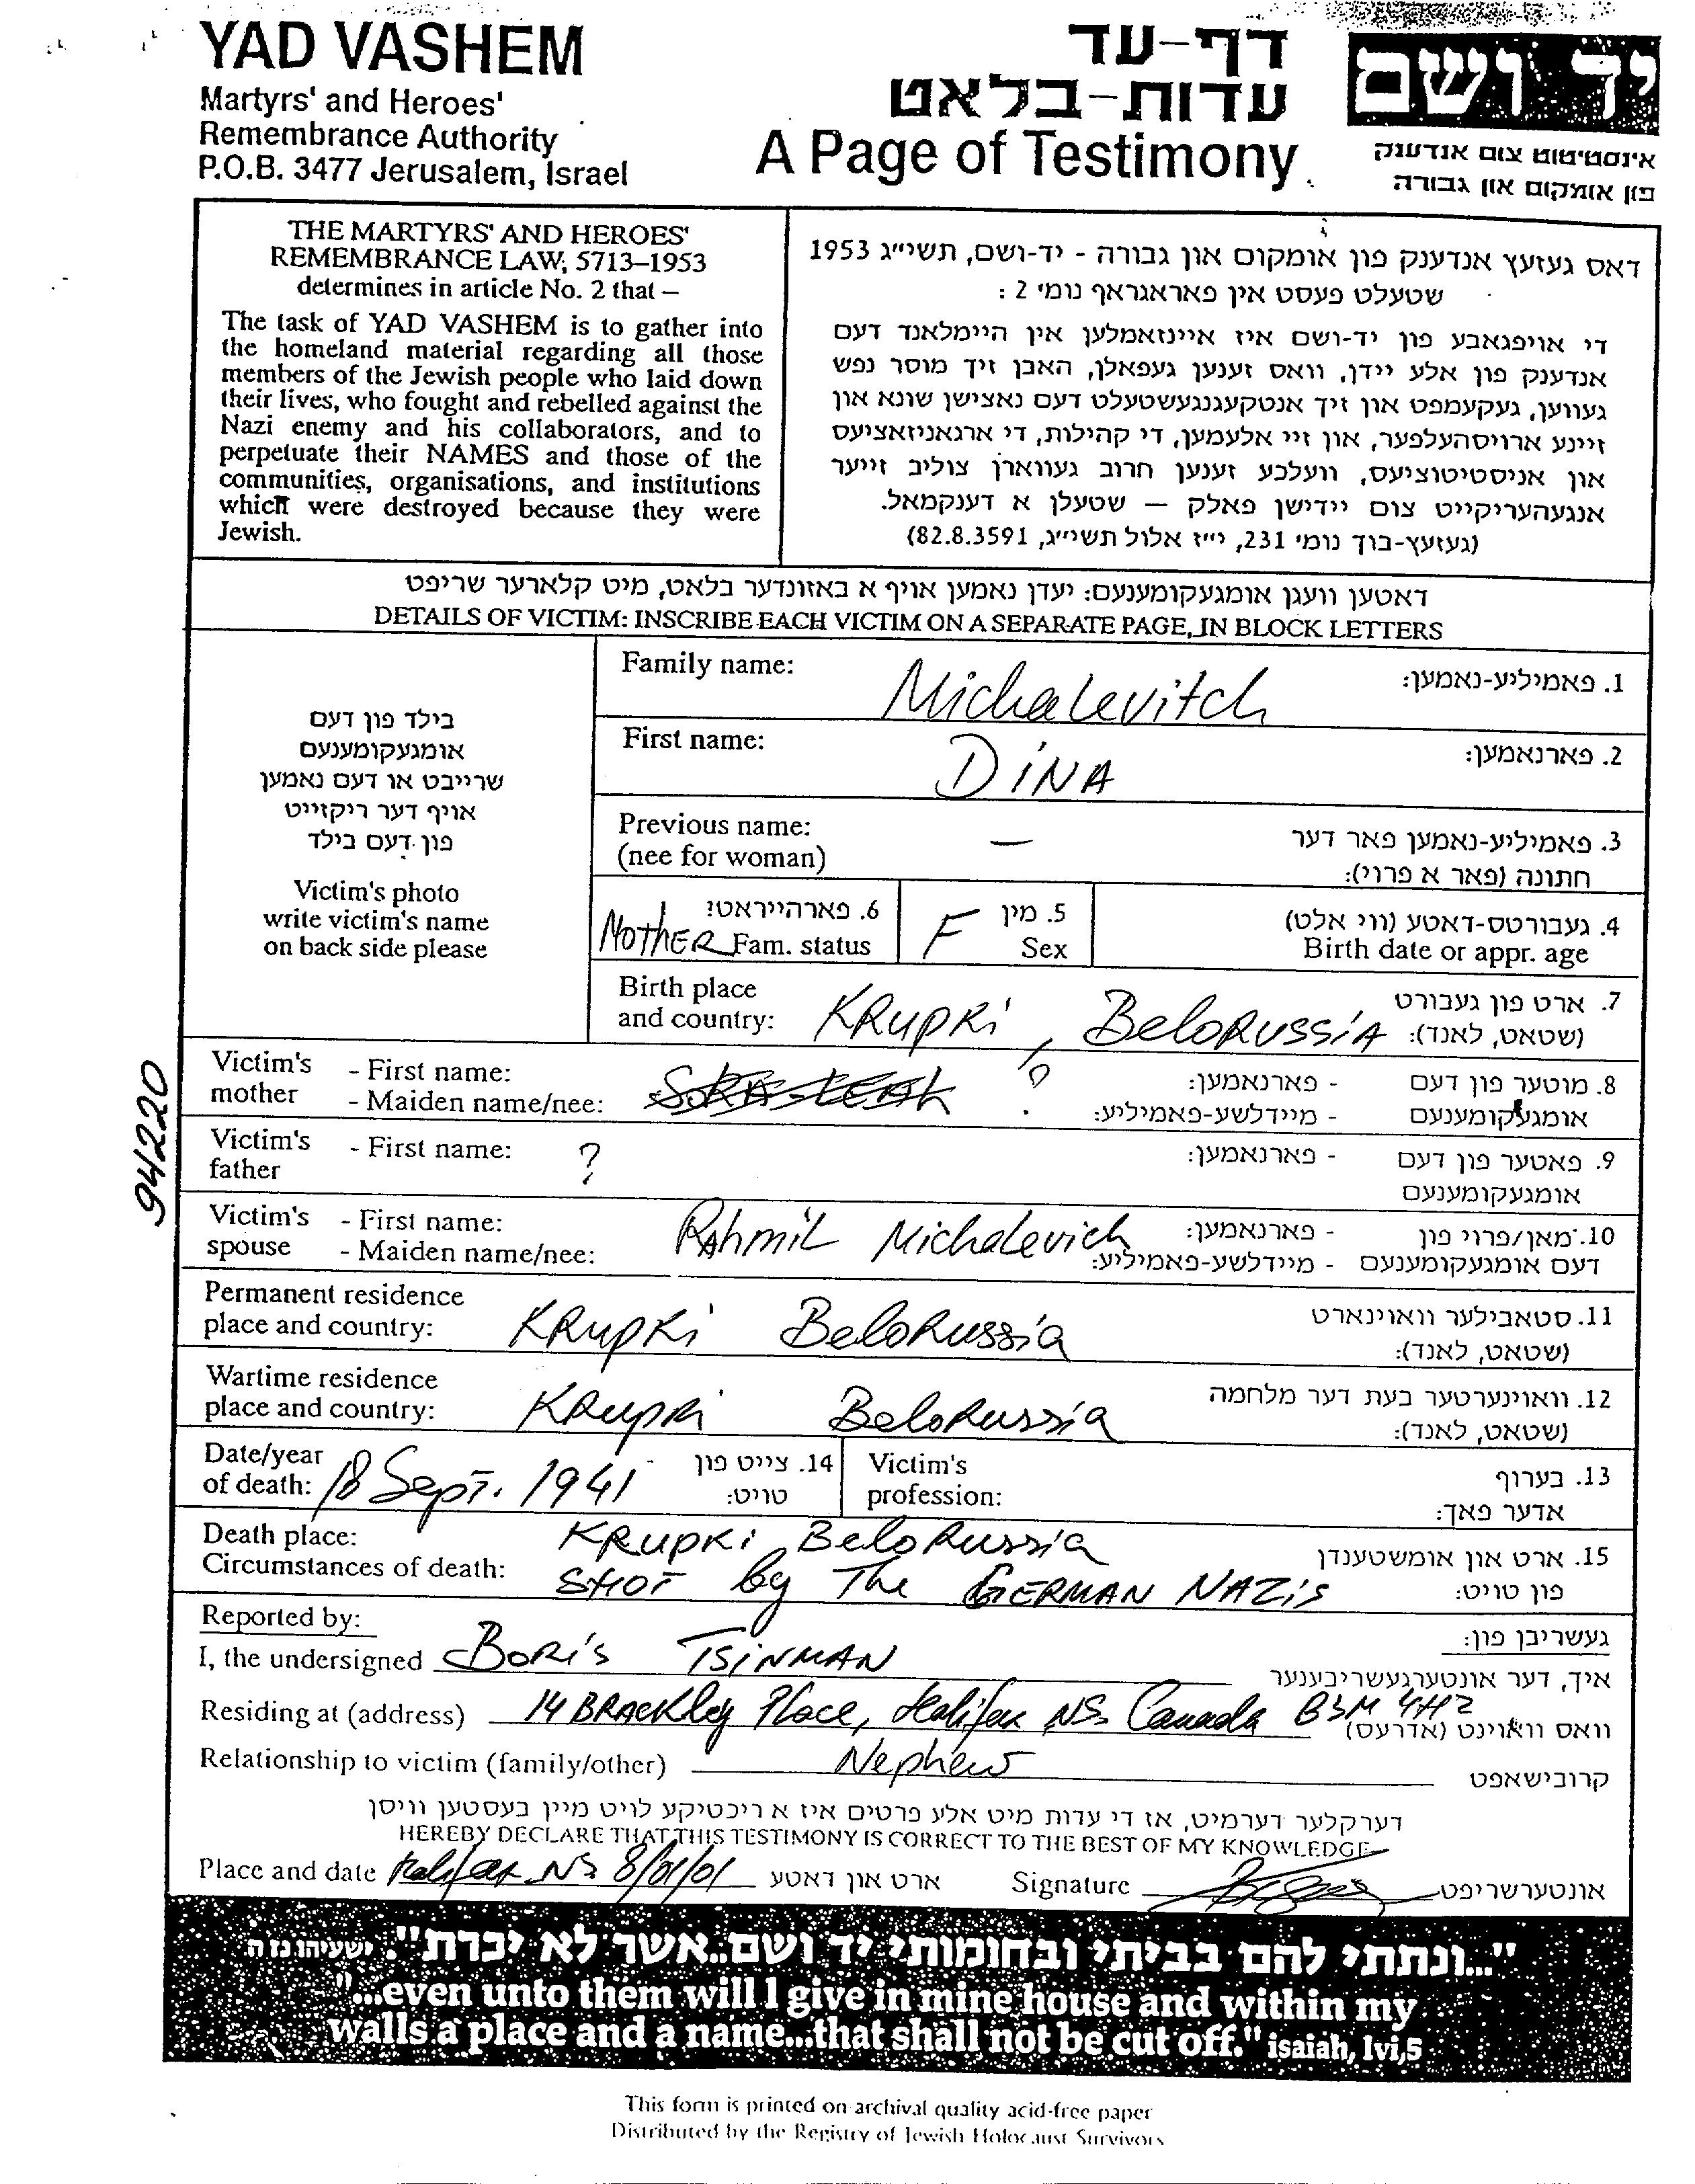 YAD VASHEM
Martyrs' and Heroes'
Remembrance Authority
P.O.B. 3477 Jerusalem, Israel
דף-עד
עדות-בלאט
A Page of Testimony
יד ושם
אינסטיטוט צום אנדענק
פון אומקום און גבורה
THE MARTYRS' AND HEROES'
REMEMBRANCE LAW, 5713–1953
determines in article No. 2 that –
The task of YAD VASHEM is to gather into
the homeland material regarding all those
members of the Jewish people who laid down
their lives, who fought and rebelled against the
Nazi enemy and his collaborators, and to
perpetuate their NAMES and those of the
communities, organisations, and institutions
which were destroyed because they were
Jewish.
דאס געזעץ אנדענק פון אומקום און גבורה - יד-ושם, תשי״ג 1953
שטעלט פעסט אין פאראגראף נומי 2 :
די אויפגאבע פון יד-ושם איז איינזאמלען אין היימלאנד דעם
אנדענק פון אלע יידן, וואס זענען געפאלן, האבן זיך מוסר נפש
געווען, געקעמפט און זיך אנטקעגנגעשטעלט דעם נאצישן שונא און
זיינע ארויסהעלפער, און זיי אלעמען, די קהילות, די ארגאניזאציעס
און אניסטיטוציעס, וועלכע זענען חרוב געווארן צוליב זייער
אנגעהעריקייט צום יידישן פאלק – שטעלן א דענקמאל.
(געזעץ-בוך נומי 231, י״ז אלול תשי״ג, 82.8.3591)
דאטען וועגן אומגעקומענעם: יעדן נאמען אויף א באזונדער בלאט, מיט קלארער שריפט
DETAILS OF VICTIM: INSCRIBE EACH VICTIM ON A SEPARATE PAGE, IN BLOCK LETTERS
בילד פון דעם
אומגעקומענעם
שרייבט או דעם נאמען
אויף דער ריקזייט
פון דעם בילד
Victim's photo
write victim's name
on back side please
Family name: Michalevitch 1. פאמיליע-נאמען:
First name: DiNA 2. פארנאמען:
Previous name: — 3. פאמיליע-נאמען פאר דער
(nee for woman) חתונה (פאר א פרוי):
6. פארהייראטי: 5. מין 4. געבורטס-דאטע (ווי אלט)
MOTHER Fam. status F Sex Birth date or appr. age
Birth place 7. ארט פון געבורט
and country: KRUPKi, BeloRUSSiA (שטאט, לאנד):
94220
Victim's - First name: ? - פארנאמען: 8. מוטער פון דעם
mother - Maiden name/nee: - מיידלשע-פאמיליע: אומגעקומענעם
Victim's - First name: ? - פארנאמען: 9. פאטער פון דעם
father אומגעקומענעם
Victim's - First name: Rahmil Michalevich - פארנאמען: 10. מאן/פרוי פון
spouse - Maiden name/nee: - מיידלשע-פאמיליע: דעם אומגעקומענעם
Permanent residence 11. סטאבילער וואוינארט
place and country: KRupKi BeloRussia (שטאט, לאנד):
Wartime residence 12. וואוינערטער בעת דער מלחמה
place and country: KRupKi BeloRussia (שטאט, לאנד):
Date/year 14. צייט פון Victim's 13. בערוף
of death: 18 Sept. 1941 טויט: profession: אדער פאך:
Death place: KRupKi BeloRussia 15. ארט און אומשטענדן
Circumstances of death: SHOT by The GERMAN NAZiS פון טויט:
Reported by: געשריבן פון:
I, the undersigned BORiS TSiNMAN איך, דער אונטערגעשריבענער
Residing at (address) 14 BRACKley Place, Halifax NS. Canada B3M 4H2 וואס וואוינט (אדרעס)
Relationship to victim (family/other) Nephew קרובישאפט
דערקלער דערמיט, אז די עדות מיט אלע פרטים איז א ריכטיקע לויט מיין בעסטען וויסן
HEREBY DECLARE THAT THIS TESTIMONY IS CORRECT TO THE BEST OF MY KNOWLEDGE
Place and date Halifax NS 8/01/01 ארט און דאטע Signature אונטערשריפט
"...ונתתי להם בביתי ובחומותי יד ושם..אשר לא יכרת". ישעיהו נו ה
"...even unto them will I give in mine house and within my
walls a place and a name...that shall not be cut off." isaiah, lvi,5
This form is printed on archival quality acid-free paper
Distributed by the Registry of Jewish Holocaust Survivors